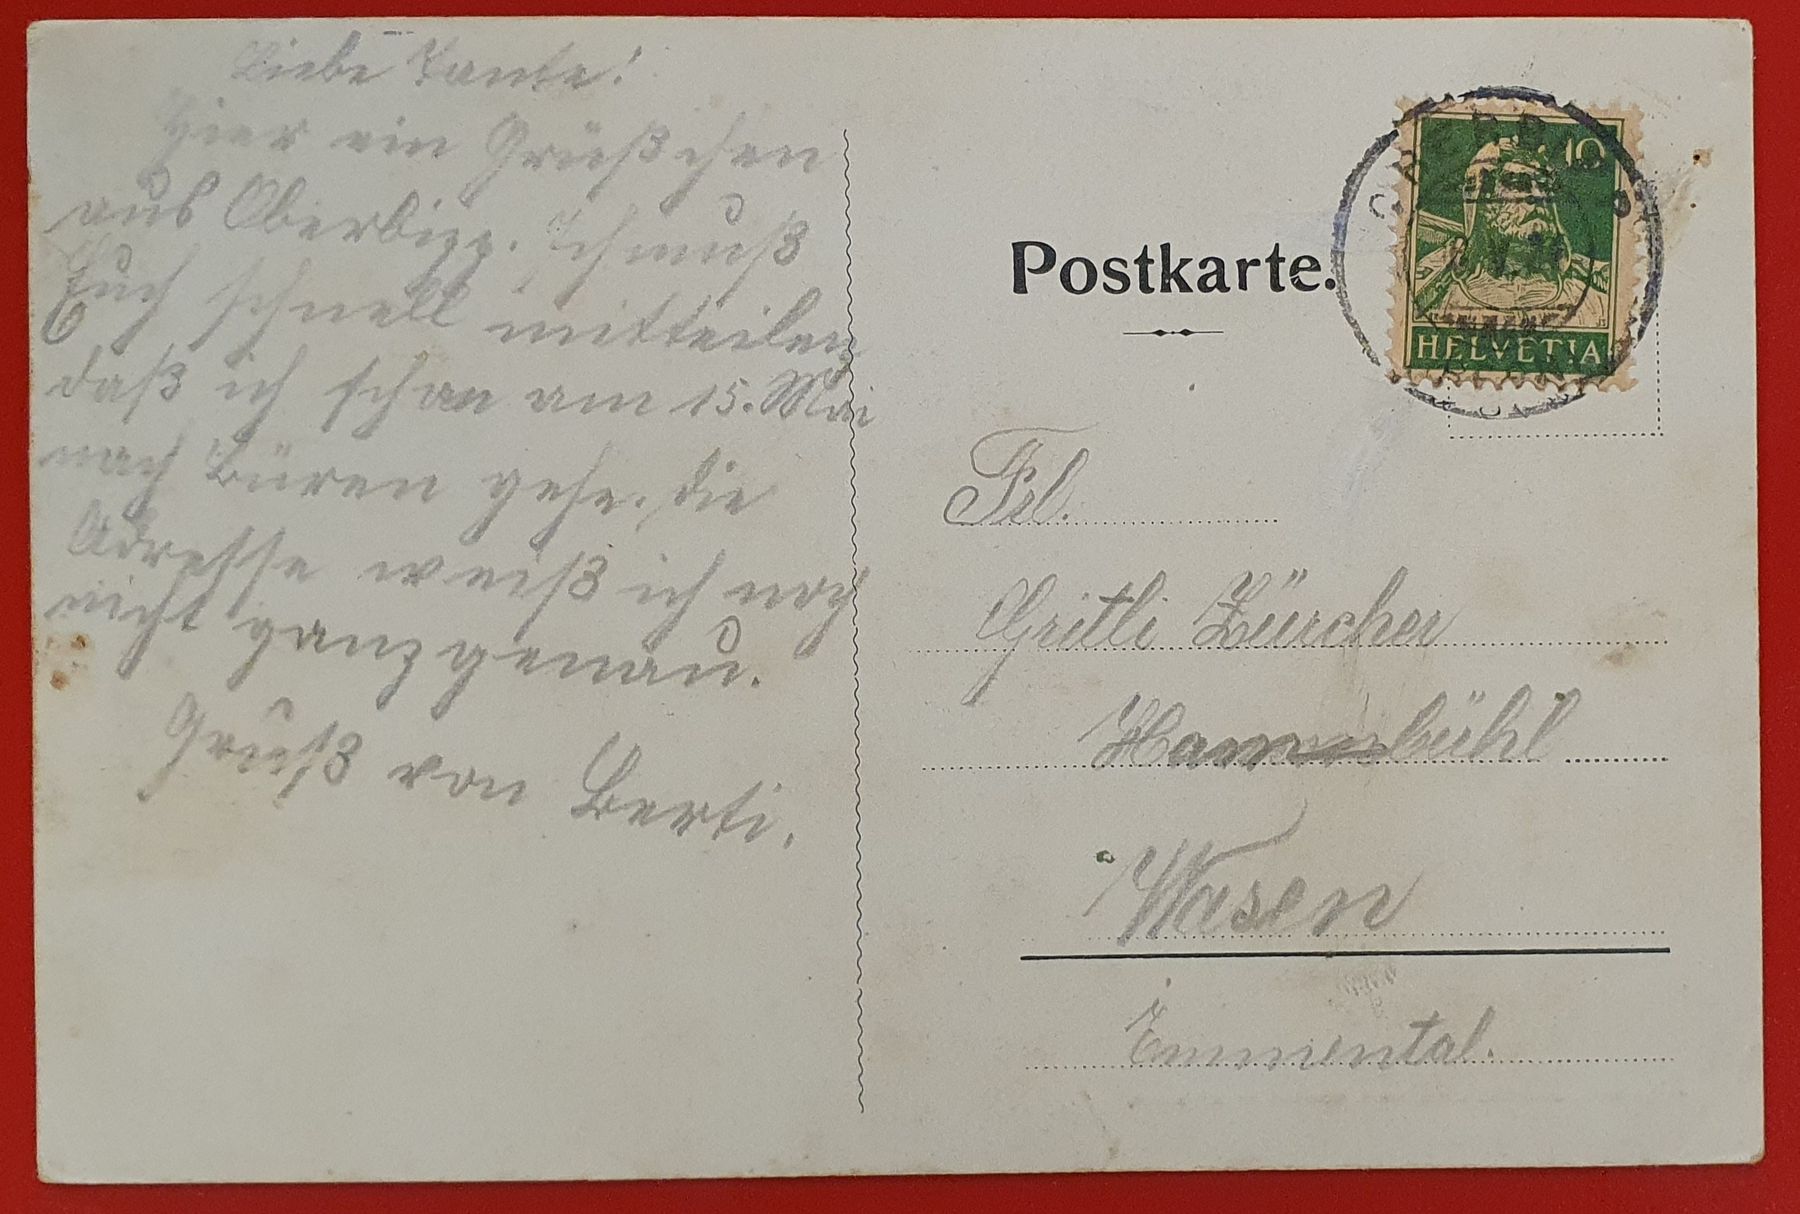 Liebe Tante!
Hier ein Grüßchen
aus Oberbipp. Ich muß
Euch schnell mitteilen
daß ich schon am 15. Mai
nach Büren gehe. Die
Adresse weiß ich noch
nicht ganz genau.
Gruß von Berti.
Postkarte.
10
HELVETIA
Frl.
Gritli Zürcher
Wasen
Emmental.